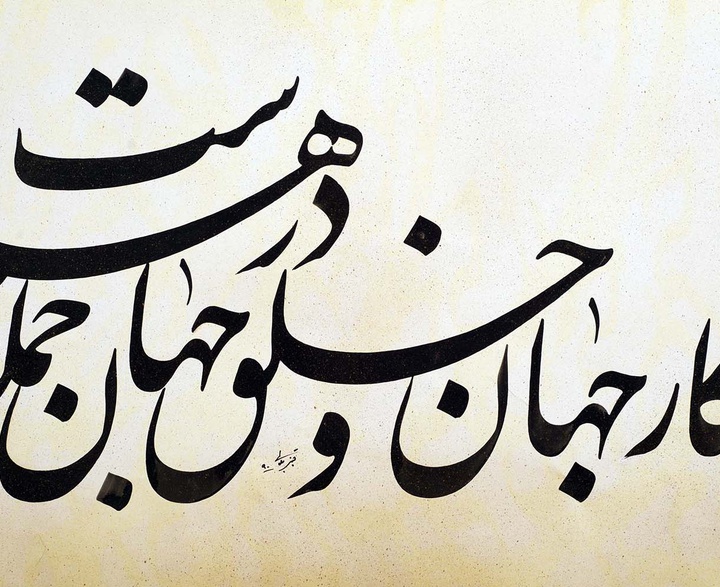 کار جهان و خلق جهان جمله در همست